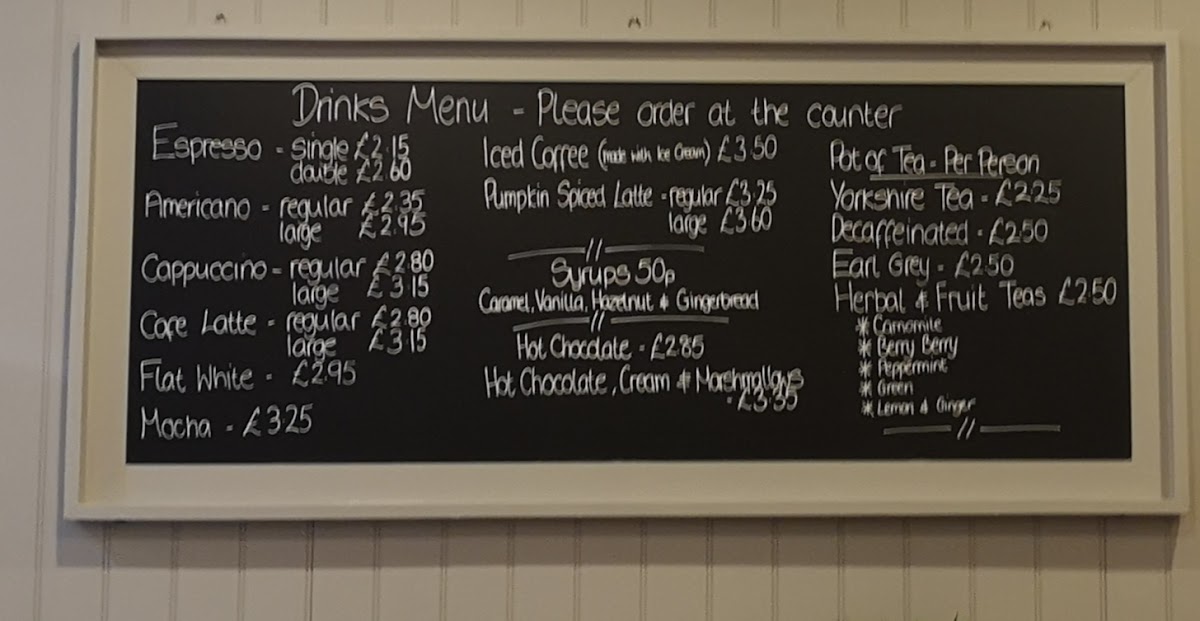 Drinks Menu - Please order at the counter
Espresso - single £2.15
double £2.60
Americano - regular £2.35
large £2.95
Cappuccino - regular £2.80
large £3.15
Cafe Latte - regular £2.80
large £3.15
Flat White - £2.95
Mocha - £3.25
Iced Coffee (made with Ice Cream) £3.50
Pumpkin Spiced Latte - regular £3.25
large £3.60
Syrups 50p
Caramel, Vanilla, Hazelnut & Gingerbread
Hot Chocolate - £2.85
Hot Chocolate, Cream & Marshmallows
- £3.35
Pot of Tea - Per Person
Yorkshire Tea - £2.25
Decaffeinated - £2.50
Earl Grey - £2.50
Herbal & Fruit Teas £2.50
* Camomile
* Berry Berry
* Peppermint
* Green
* Lemon & Ginger